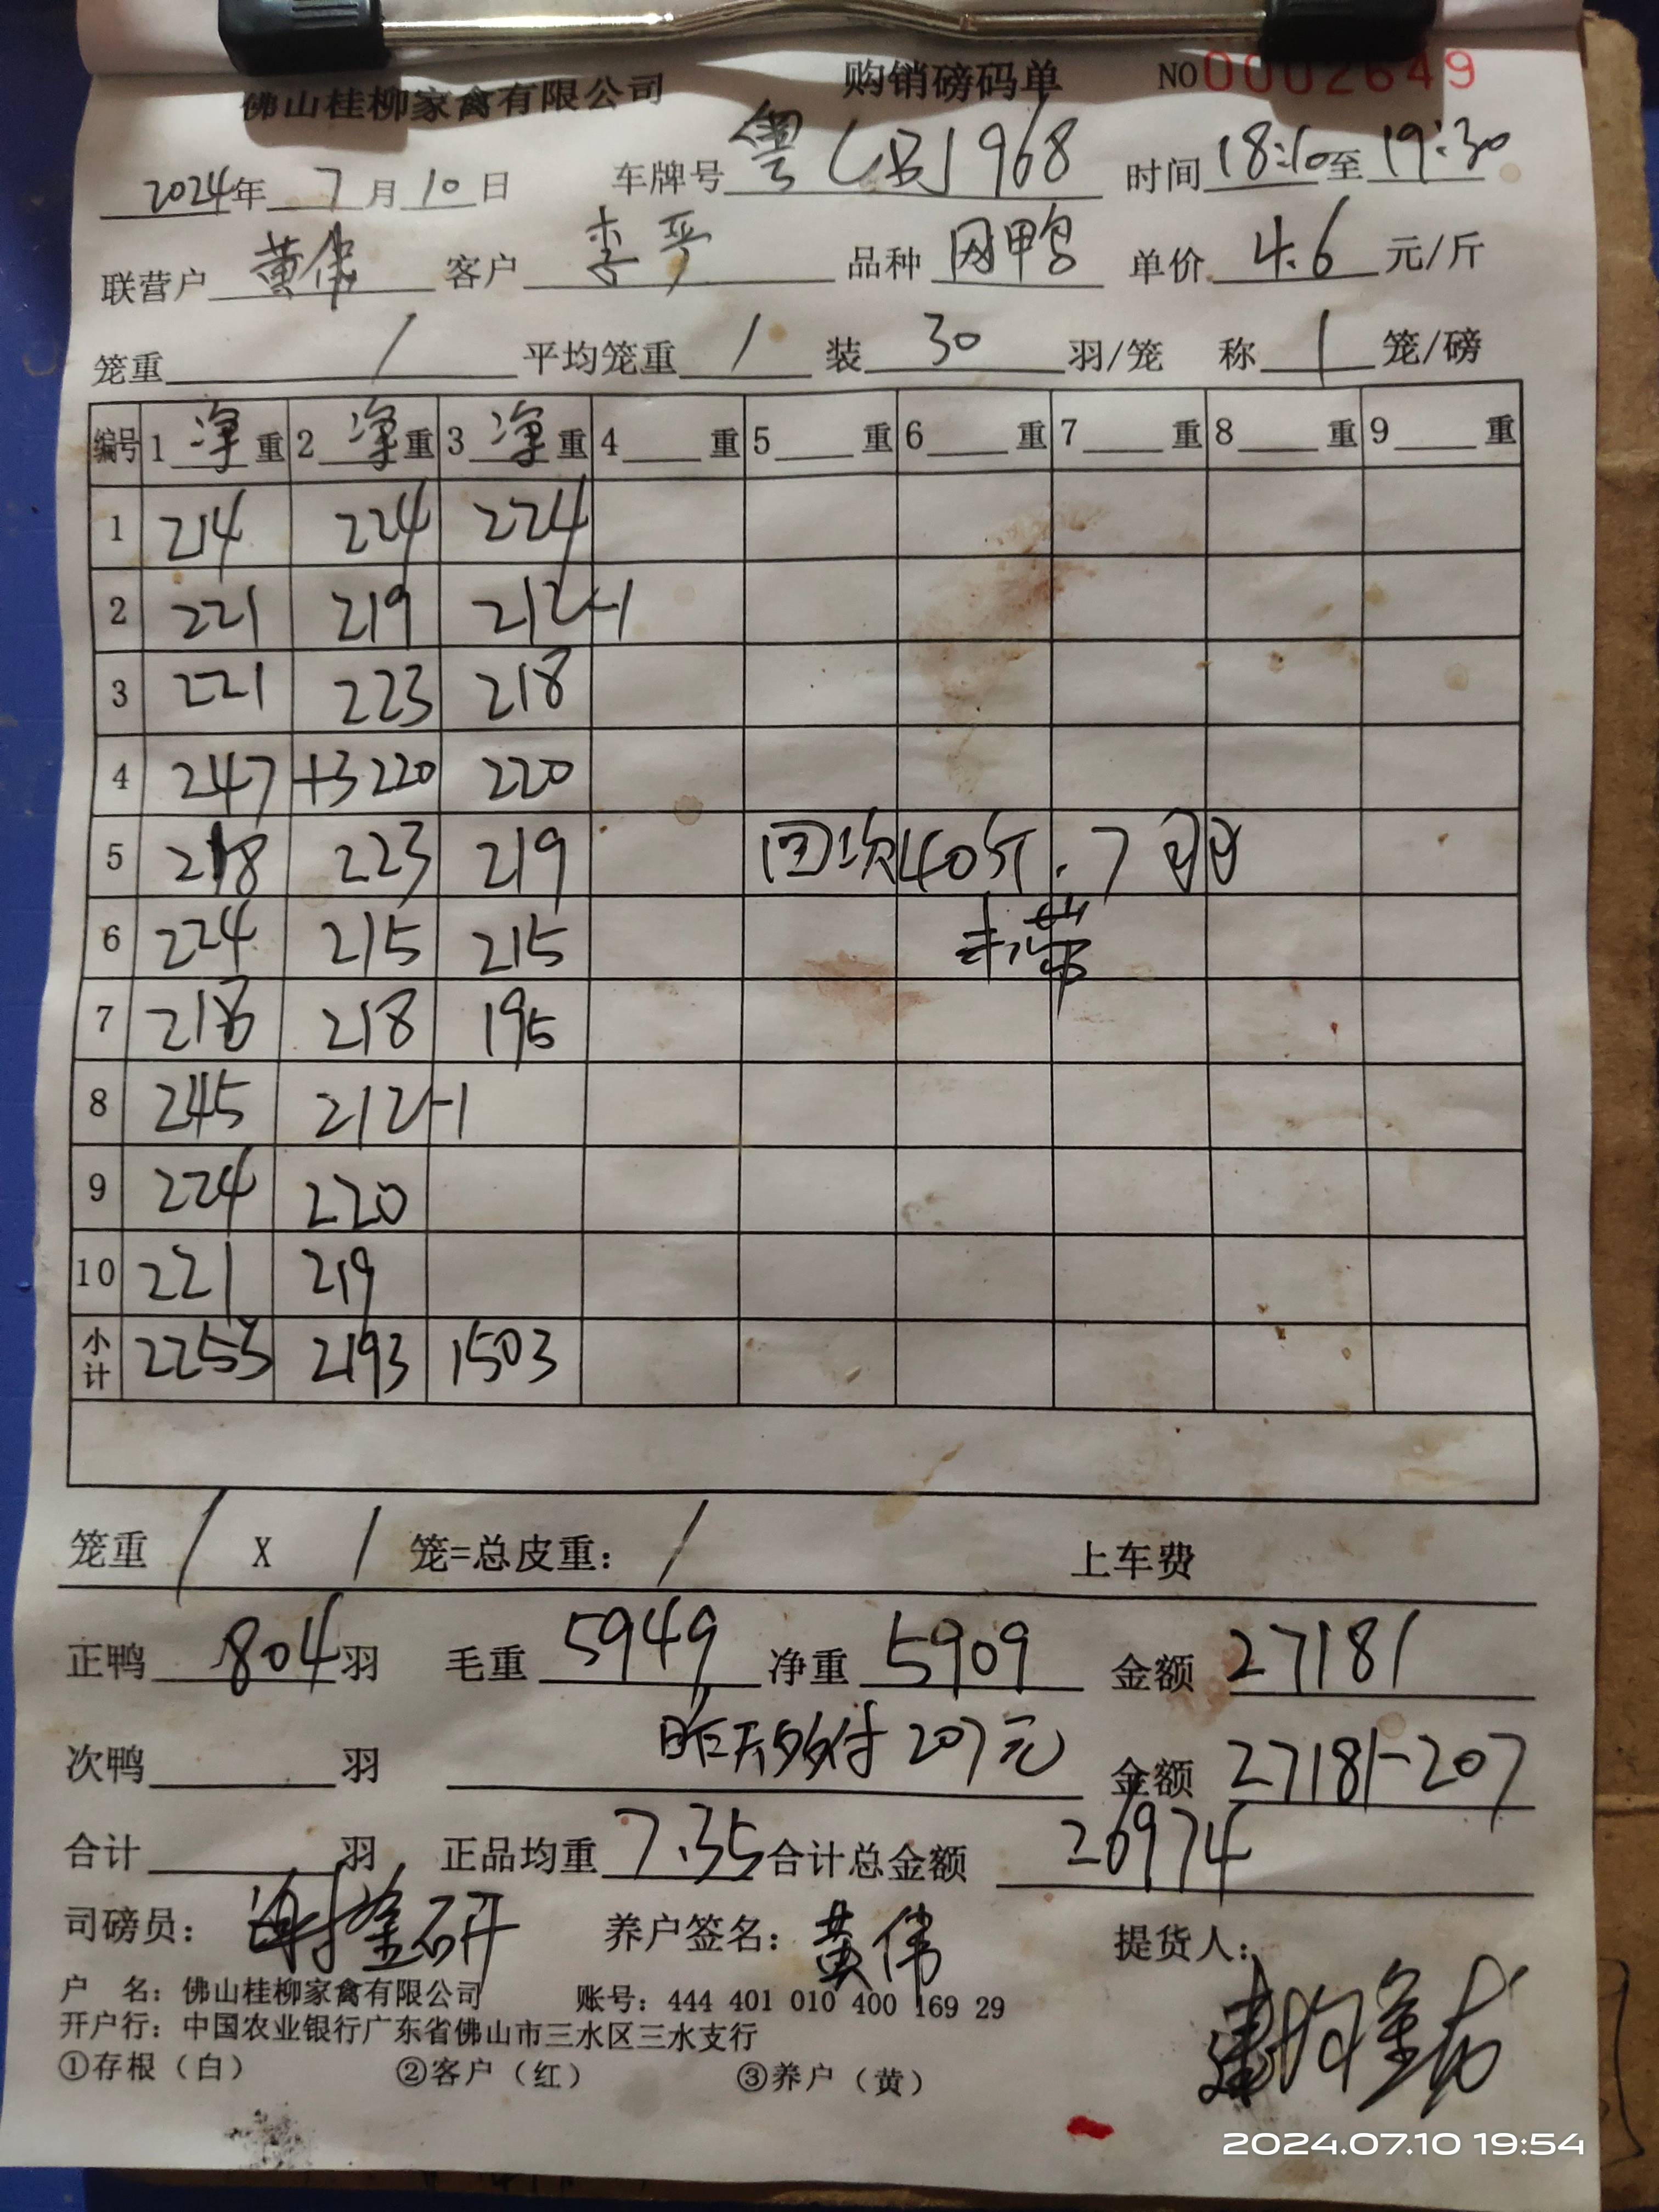 佛山桂柳家禽有限公司 购销磅码单 NO 0002649
2024年 7 月 10 日 车牌号 粤 968 时间 18:10 至 19:30
联营户 黄伟 客户 李 品种 鸭 单价 4.6 元/斤
笼重 / 平均笼重 / 装 30 羽/笼 称 1 笼/磅
编号 1 净 重 2 净 重 3 净 重 4 重 5 重 6 重 7 重 8 重 9 重
1 214 224 224
2 221 219 212-1
3 221 223 218
4 247 +3 220 220
5 218 223 219 回 40斤.7羽
6 224 215 215
7 218 218 195
8 245 212-1
9 224 220
10 221 219
小计 2253 2193 1503
笼重 / X / 笼=总皮重: / 上车费
正鸭 804 羽 毛重 5949 净重 5909 金额 27181
次鸭 羽 昨天多付 207元 金额 27181-207
合计 羽 正品均重 7.35 合计总金额 26974
司磅员: 谢 研 养户签名: 黄伟 提货人:
户 名: 佛山桂柳家禽有限公司 账号: 444 401 010 400 169 29
开户行: 中国农业银行广东省佛山市三水区三水支行
①存根（白） ②客户（红） ③养户（黄）
2024.07.10 19:54